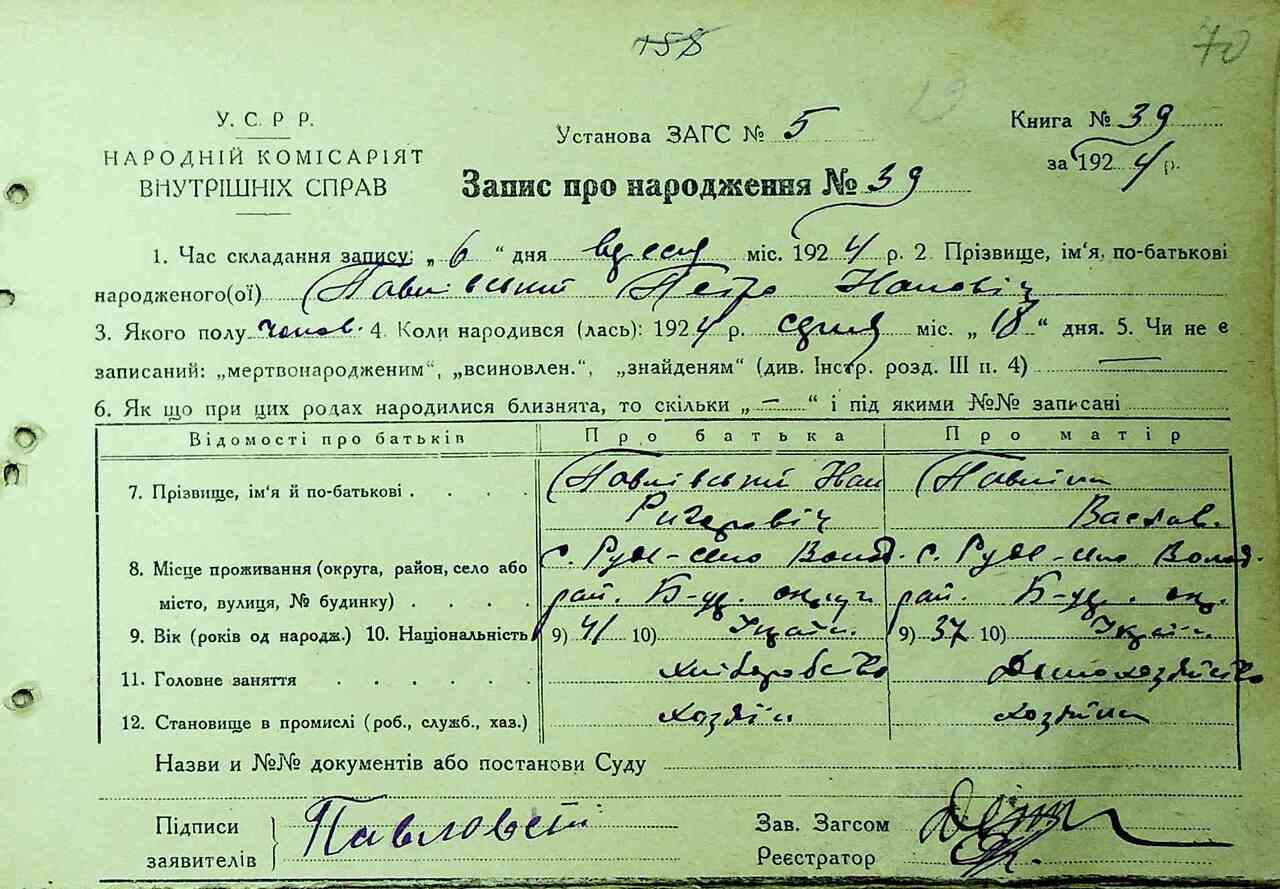 158
70
У. С. Р Р.
НАРОДНІЙ КОМІСАРІЯТ
ВНУТРІШНІХ СПРАВ
Установа ЗАГС № 5
Книга № 39
за 1924 р.
Запис про народження № 39
1. Час складання запису: „ 6 “ дня міс. 1924 р. 2. Прізвище, ім‘я, по-батькові
народженого(ої) Павлівський Петро
3. Якого полу чолов. 4. Коли народився (лась): 1924 р. міс. „ 18 “ дня. 5. Чи не є
записаний: „мертвонародженим“, „всиновлен.“, „знайденям“ (див. Інстр. розд. III п. 4)
6. Як що при цих родах народилися близнята, то скільки „ — “ і під якими №№ записані
Відомості про батьків Про батька Про матір
7. Прізвище, ім‘я й по-батькові . . . . Павлівський Павліна
Васлав.
8. Місце проживання (округа, район, село або с. с.
місто, вулиця, № будинку) . . . . рай. Б-ц. округ рай. Б-ц. ок.
9. Вік (років од народж.) 10. Національність 9) 41 10) Україн. 9) 37 10) Україн.
11. Головне заняття . . . . . . Хліборобство Домохозяйство
12. Становище в промислі (роб., служб., хаз.) хозяїн хозяйка
Назви и №№ документів або постанови Суду
Підписи
заявителів
Павловский
Зав. Загсом
Реєстратор